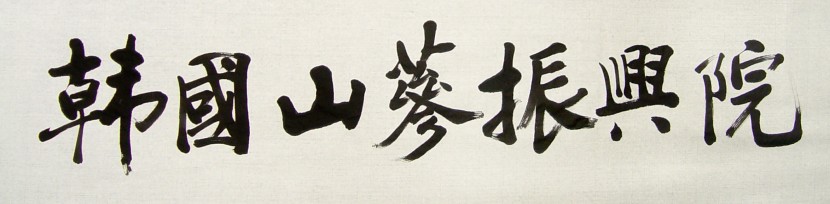 韩國山蔘振興院